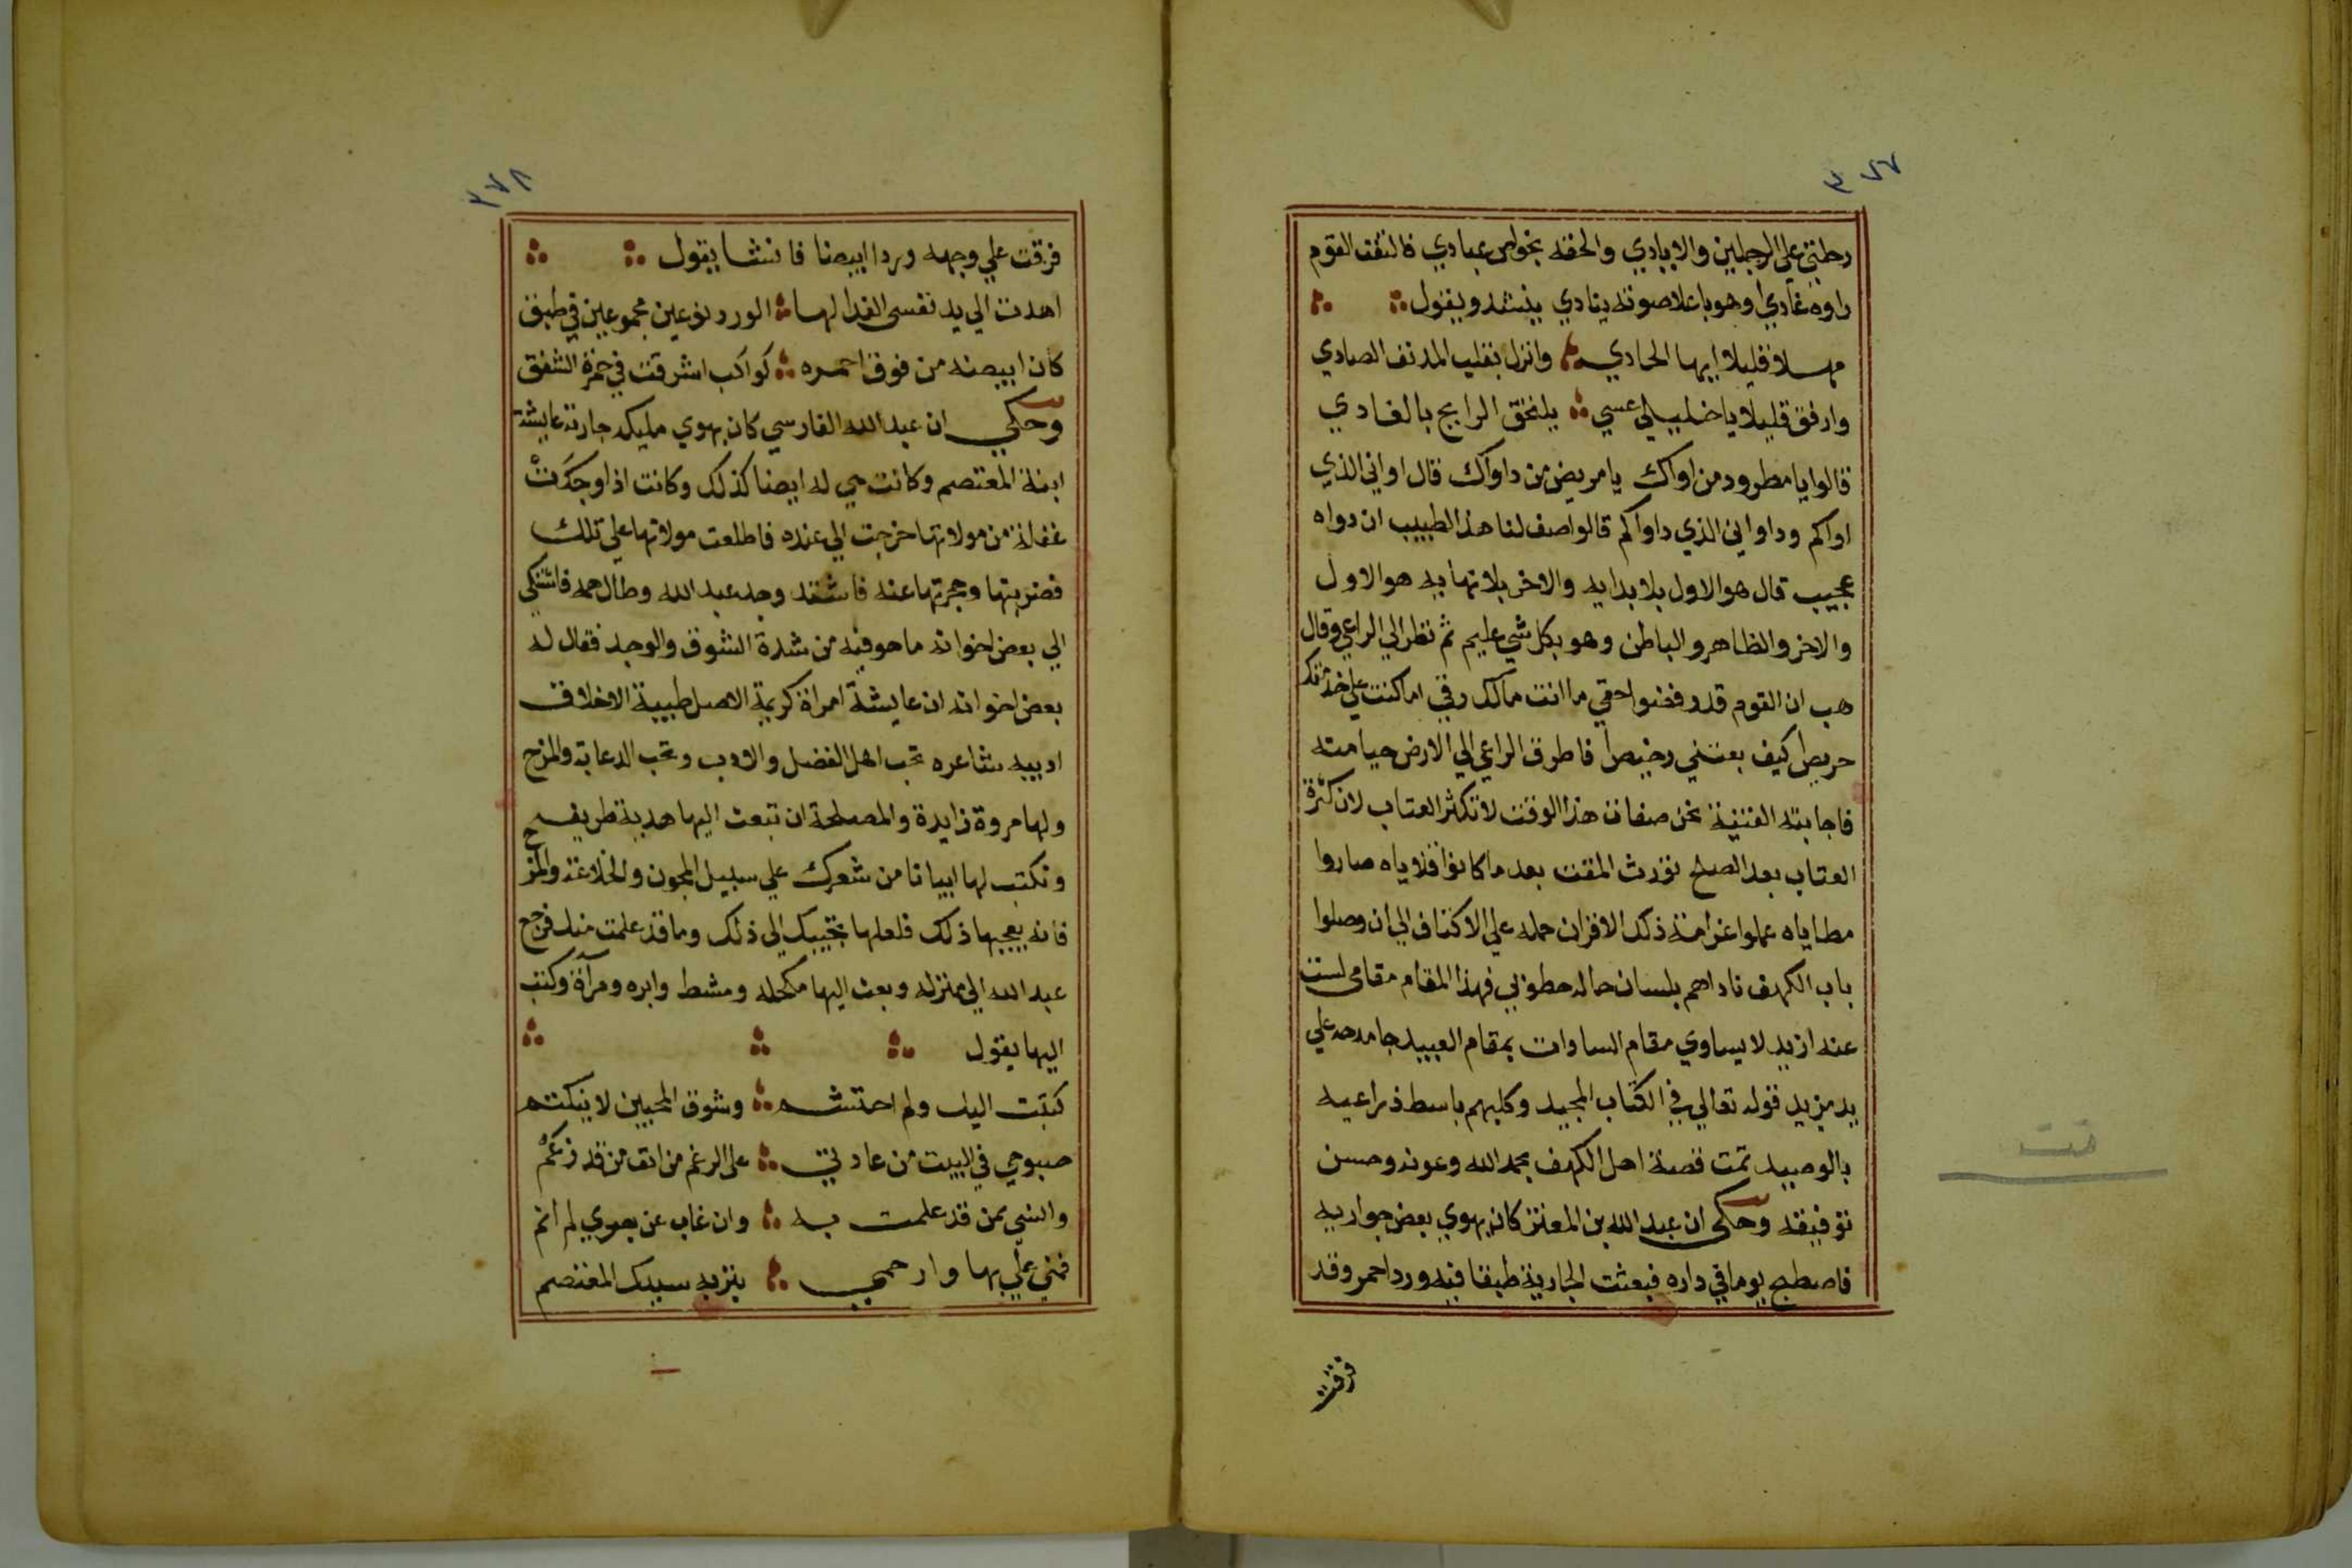 ٣٧٧
رحلتني علي الرجلين والايادي والحقه بخواص عبادي فالتفت القوم
راوه غادي وهو باعلا صوته ينادي ينشد ويقول
مهلا قليلا ايها الحادي وانزل بقلب المدنف الصادي
وارفق قليلا يا خليلي عسي يلتحق الرايح بالغادي
قالوا يا مطرود من اواك يا مريض من داواك قال اواني الذي
اواكم وداواني الذي داواكم قالوا صف لنا هذا الطبيب ان دواه
عجيب قال هو الاول بلا بدايه والاخر بلا نهايه هو الاول
والاخر والظاهر والباطن وهو بكل شي عليم ثم نظر الي الراعي وقال
هب ان القوم قد رفضوا حقي ما انت مالك رقي اما كنت علي خدمتك
حريصا كيف بعتني رخيصا فاطرق الراعي الي الارض حيا منه
فاجابته الفتية نحن صفات هذا الوقت لا تكثر العتاب لان كثرة
العتاب بعد الصلح تورث المقت بعد ما كانوا قلاياه صاروا
مطاياه عملوا غرامة ذلك الاقران حمله علي الاكتاف الي ان وصلوا
باب الكهف ناداهم بلسان حاله حطوني فهذا المقام مقامي لست
عنه ازيد لا يساوي مقام السادات بمقام العبيد جا مدحه علي
يد مزيد قوله تعالي في الكتاب المجيد وكلبهم باسط ذراعيه
بالوصيد تمت قصة اهل الكهف بحمد الله وعونه وحسن
توفيقه وحكي ان عبد الله بن المعتز كان يهوي بعض جواريه
فاصطبح يوما في داره فبعثت الجارية طبقا فيه وردا حمر وقد
فرقت
تمت
٣٧٨
فرقت علي وجهه وردا ابيضا فانشا يقول
اهدت الي يد نفسي الفدا لها الورد نوعين مجموعين في طبق
كان ابيضه من فوق احمره كواكب اشرقت في حمرة الشفق
وحكي ان عبد الله الفارسي كان يهوي مليكه جارية عايشة
ابنة المعتصم وكانت هي له ايضا كذلك وكانت اذا وجدت
غفلة من مولاتها خرجت الي عنده فاطلعت مولاتها علي تلك
فضربتها وحجرتها عنه فاشتد وجد عبد الله وطال همه فاشتكي
الي بعض اخوانه ما هو فيه من شدة الشوق والوجد فقال له
بعض اخوانه ان عايشة امراة كريمة الاصل طيبة الاخلاق
اديبه شاعره تحب اهل الفضل والادب وتحب الدعابة والمزح
ولها مروة زايدة والمصلحة ان تبعث اليها هدية ظريفه
وتكتب لها ابياتا من شعرك علي سبيل المجون والخلاعة والمزح
فانه يعجبها ذلك فلعلها تجيبك الي ذلك وما قد علمت منك فرجع
عبد الله الي منزله وبعث اليها مكحله ومشط وابره ومرآة وكتب
اليها يقول
كتبت اليك ولم احتشم وشوق المحبين لا ينكتم
صبوحي في البيت من عادتي علي الرغم من انف من قد زعم
والشي ممن قد علمت به وان غاب عن بصري لم انم
فمني علي بها وارحمي بتربه سيدك المعتصم